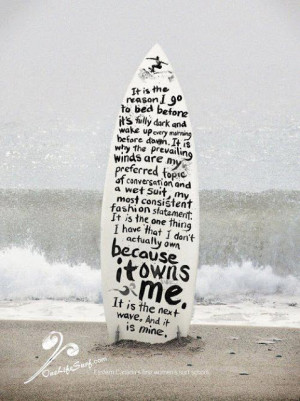 It is the
reason I go
to bed before
it's fully dark and
wake up every morning
before dawn. It is
why the prevailing
winds are my
preferred topic
of conversation and
a wet suit, my
most consistent
fashion statement.
It is the one thing
I have that I don't
actually own
because
it owns
me.
It is the next
wave. And it
is mine.
OneLifeSurf.com